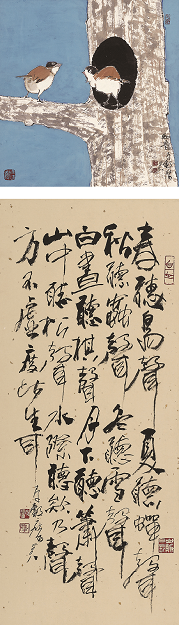 春聽鳥聲夏聽蟬聲
秋聽蟲聲冬聽雪聲
白晝聽棋聲月下聽簫聲
山中聽松聲水際聽欸乃聲
方不虛度此生耳